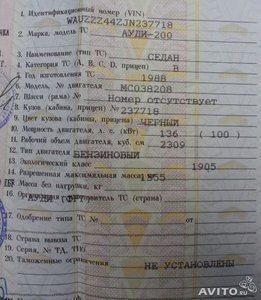 1. Идентификационный номер (VIN)
WAUZZZ44ZJN237718
2. Марка, модель ТС
АУДИ-200
3. Наименование (тип ТС)
СЕДАН
4. Категория ТС (A, B, C, D, прицеп)
B
5. Год изготовления ТС
1988
6. Модель, № двигателя
MC038208
7. Шасси (рама) №
Номер отсутствует
8. Кузов (кабина, прицеп) №
237718
9. Цвет кузова (кабины, прицепа)
ЧЕРНЫЙ
10. Мощность двигателя, л. с. (кВт)
136 ( 100 )
11. Рабочий объем двигателя, куб. см
2309
12. Тип двигателя
БЕНЗИНОВЫЙ
13. Экологический класс
14. Разрешенная максимальная масса, кг
1905
15. Масса без нагрузки, кг
1355
АУДИ
17. Одобрение типа ТС №
18. Страна вывоза ТС
19. Серия, № ТД, ТПО
20. Таможенные ограничения
НЕ УСТАНОВЛЕНЫ
AVITO.ru